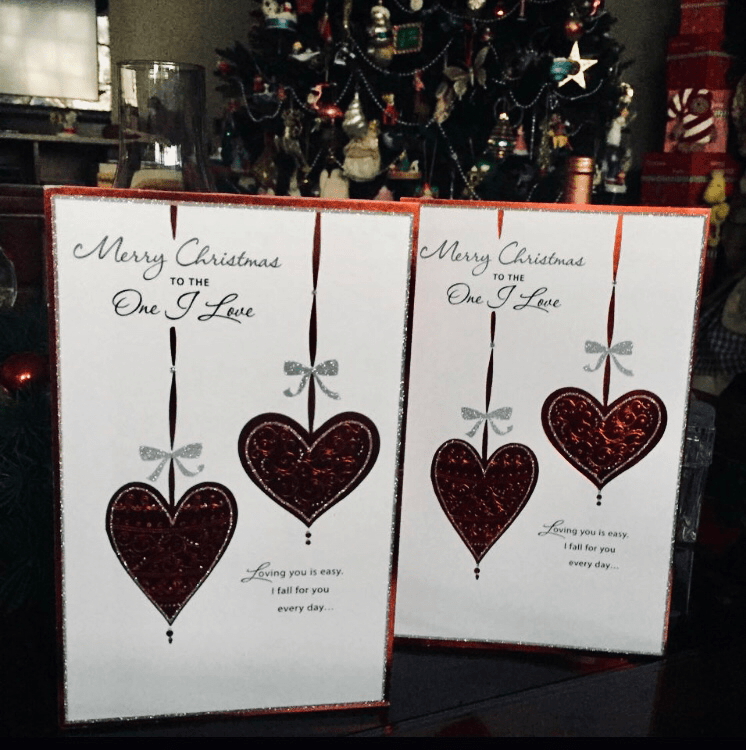 Merry Christmas
TO THE
One I Love
Loving you is easy.
I fall for you
every day...
Merry Christmas
TO THE
One I Love
Loving you is easy.
I fall for you
every day...